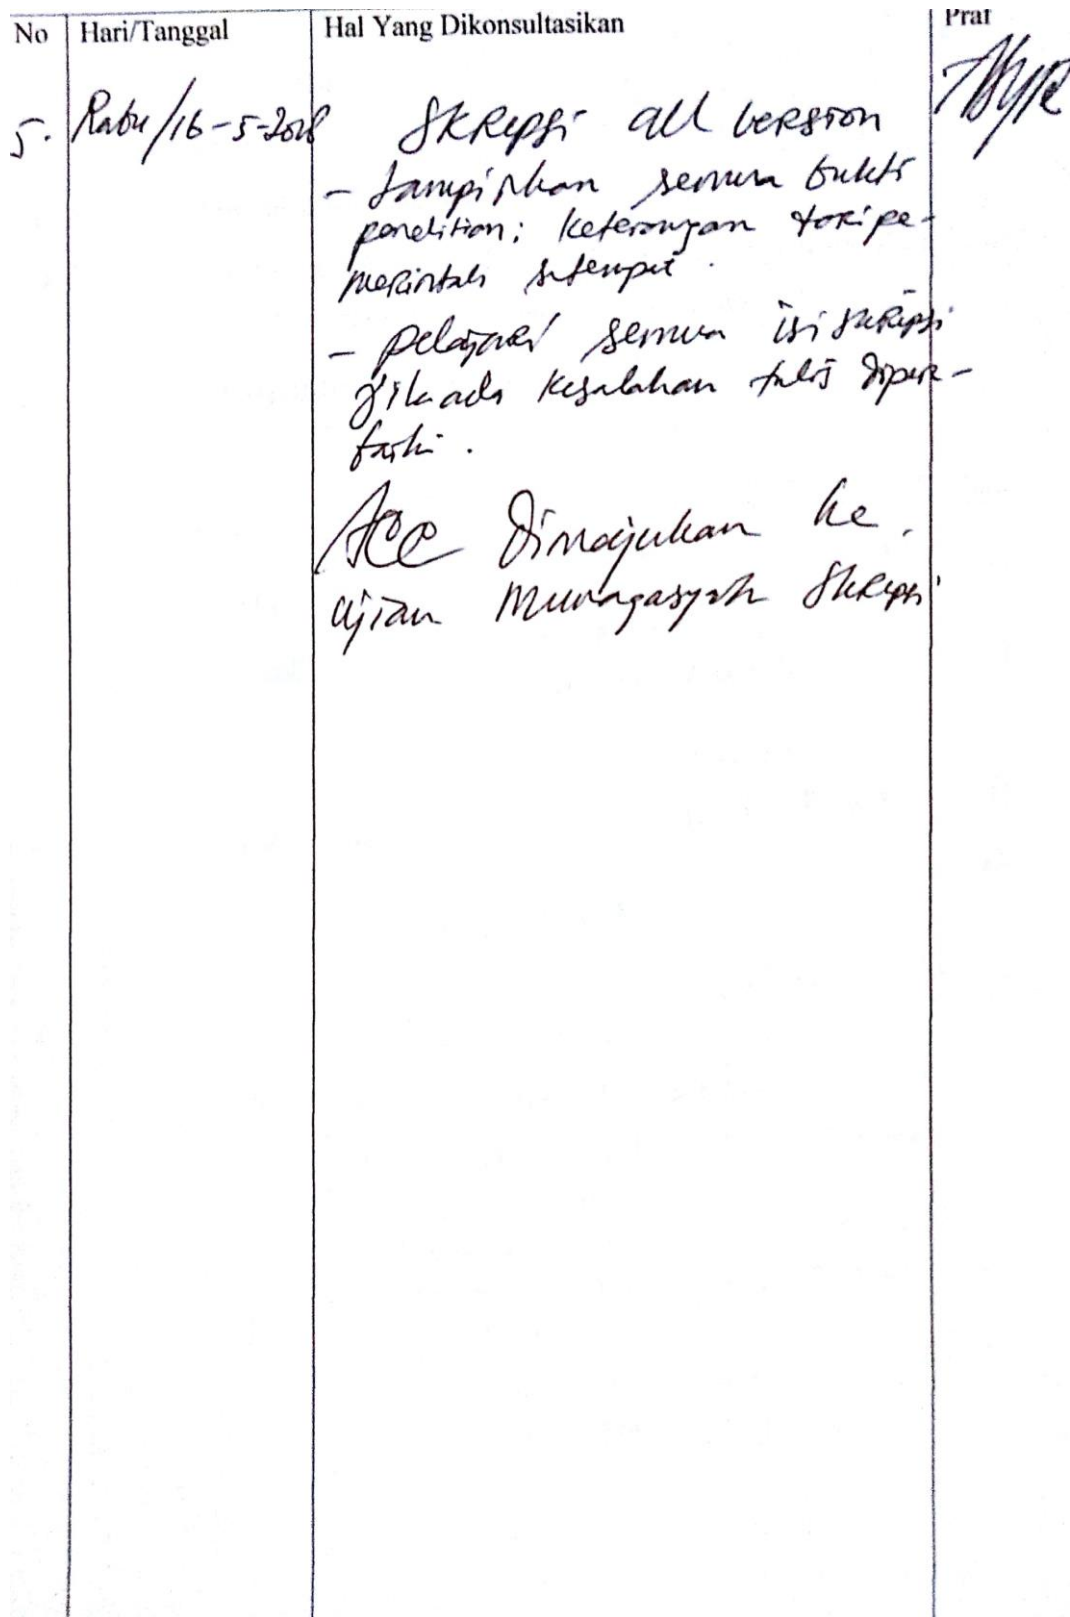 No Hari/Tanggal Hal Yang Dikonsultasikan Praf
5. Rabu/16-5-2018 Skripsi all version
- Lampirkan semua bukti
penelitian; keterangan dari pe-
merintah setempat.
- pelajari semua isi skripsi
jika ada kesalahan tulis diper-
baiki.
Acc Dimajukan ke
ujian Munaqasyah Skripsi